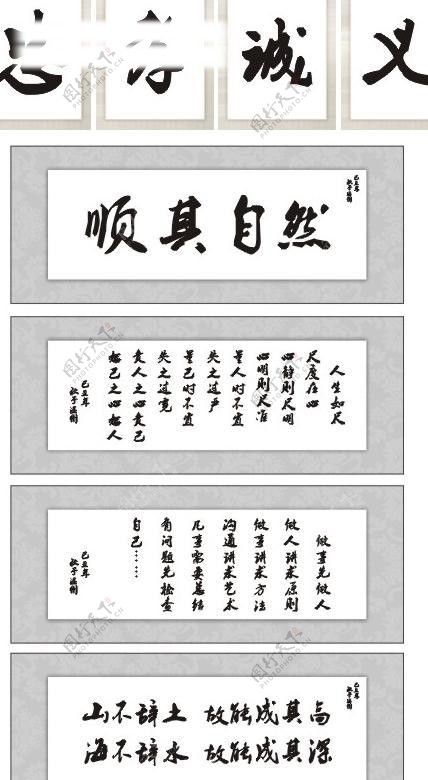 忠
孝
诚
义
顺其自然
己丑年
人生如尺
尺度在心
心静则尺明
心明则人准
量人时不宜
失之过严
量己时不宜
失之过宽
责人之心责己
恕己之心恕人
己丑年
做事先做人
做人讲求原则
做事讲求方法
沟通讲求艺术
凡事需要总结
有问题先检查
自己……
己丑年
己丑年
山不辞土 故能成其高
海不辞水 故能成其深
图行天下
PHOTOPHOTO.CN